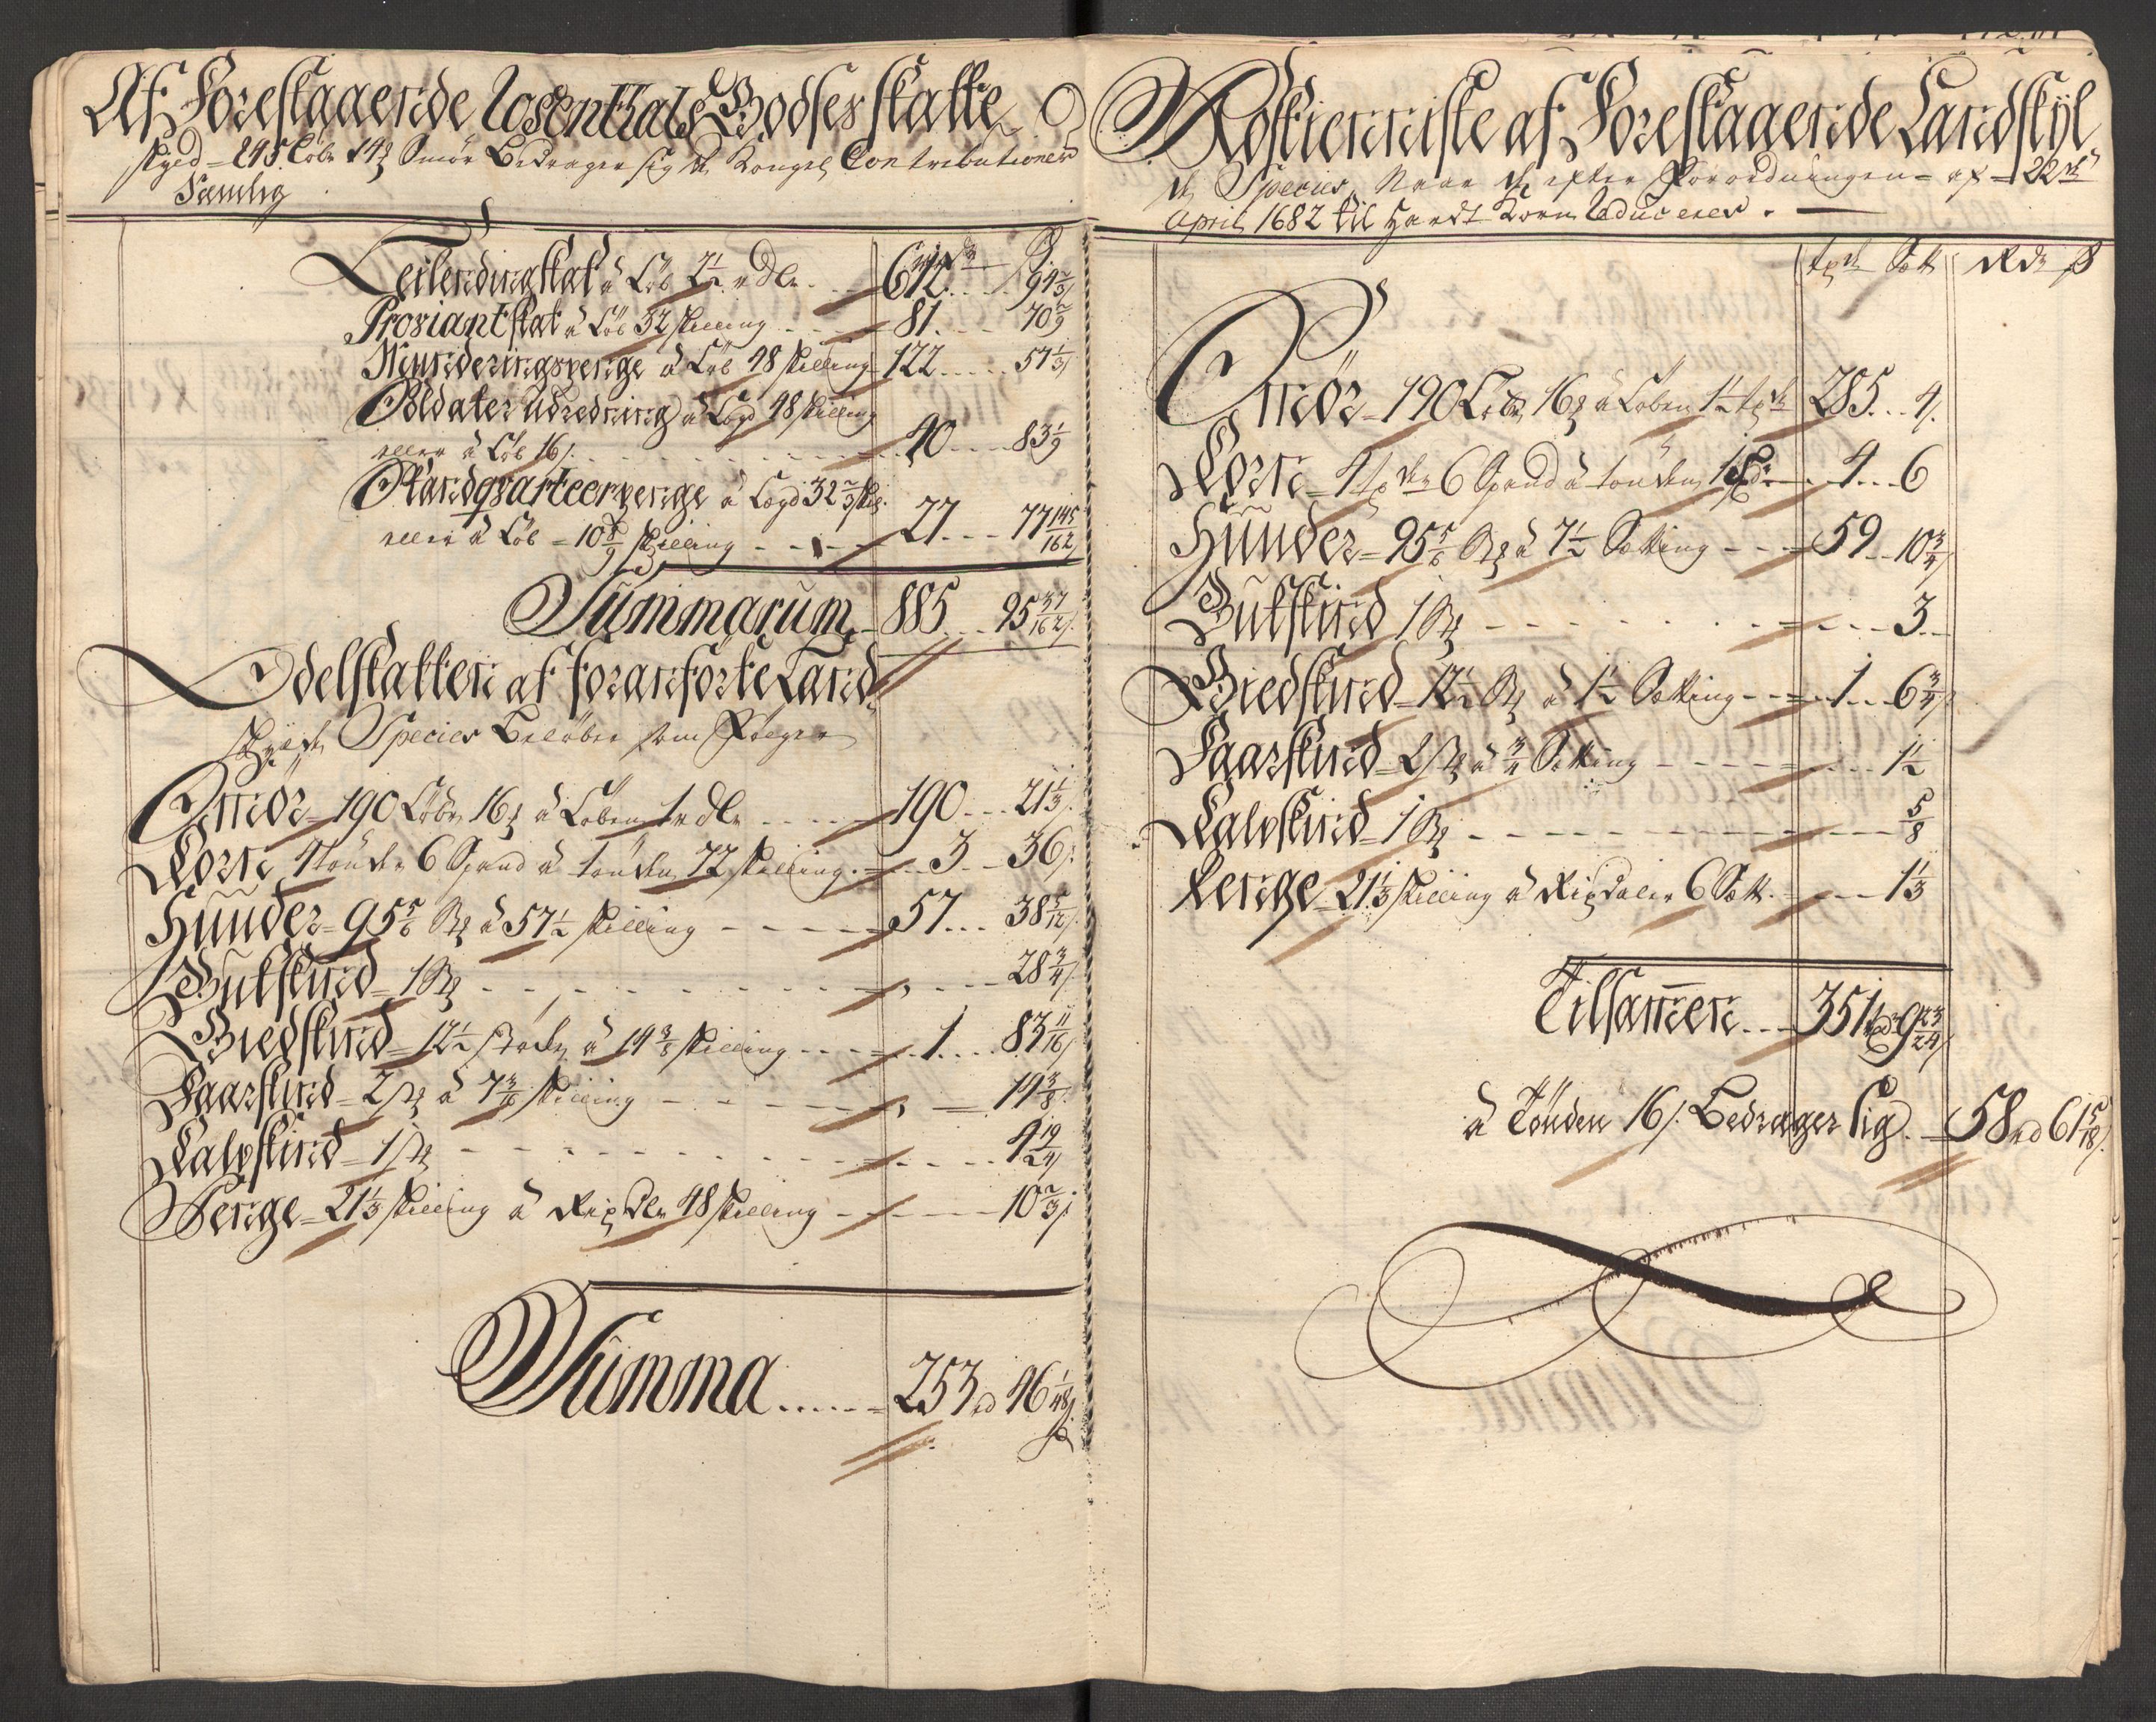 Af Forestaaende Rosenthals Godses skatte
skyld = 245 Løbe 14 Smör Bedrager sig de Kongel Contributioner
Samlig
rdr ß
Leilendingskat à Löb 2 1/2 rdlr 612 94 2/3
Proviantskat à Löb 32 skilling 81 70 2/9
Munderingspenge à Löb 48 skilling 122 57 1/3
Soldater Udredning à Lægd 48 skilling
eller à Löb 16 s. 40 83 1/9
Standqvarteerpenge à Lægd 32 2/3 skil.
eller à Löb = 10 8/9 skilling 27 77 145/162
Summarum 885 95 37/162
Odelskatten af foranförte Land
skylds Species Belöber som Fölger
Smör = 190 Löber 16 à Löben 1 rdlr 190 21 1/3
Korn 4 tönder 6 Spand à tönden 72 skilling 3 36
Huuder = 95 5/6 Stk à 57 1/2 skilling 57 38 5/12
Bukskind = 1 Stk 28 3/4
Giedskind = 12 1/2 Stk à 14 3/8 skilling 1 83 11/16
Faarskind = 2 Stk à 7 3/16 skilling 14 3/8
Kalvskind = 1 Stk 4 19/24
Penge = 21 1/3 skilling à Rixdlr 48 skilling 10 2/3
Summa 253 rd 46 1/48
Rostienniste af Forestaaende Landskyl
ds Species, Naar de efter Forordningen = af = 22de
April 1682 til Hardt Korn Reduceres.
tønde Sett Rdr ß
Smör = 190 Löber, 16 à Löben 1 1/2 tønde 285 4
Korn = 4 tønder 6 Spand à tönden 1 tønde 4 6
Huuder = 95 5/6 Stk à 7 1/2 Setting 59 10 3/4
Bukskind 1 Stk 3
Giedskind = 12 1/2 Stk à 1 1/2 Setting 1 6 3/4
Faarskind = 2 Stk à 3/4 Setting 1 1/2
Kalvskind = 1 Stk 5/8
Penge = 21 1/3 skilling à Rixdaler 6 Sett. 1 1/3
Tilsammen 351 9 23/24
à Tönden 16 s. Bedrager sig 58 rd 61 5/18